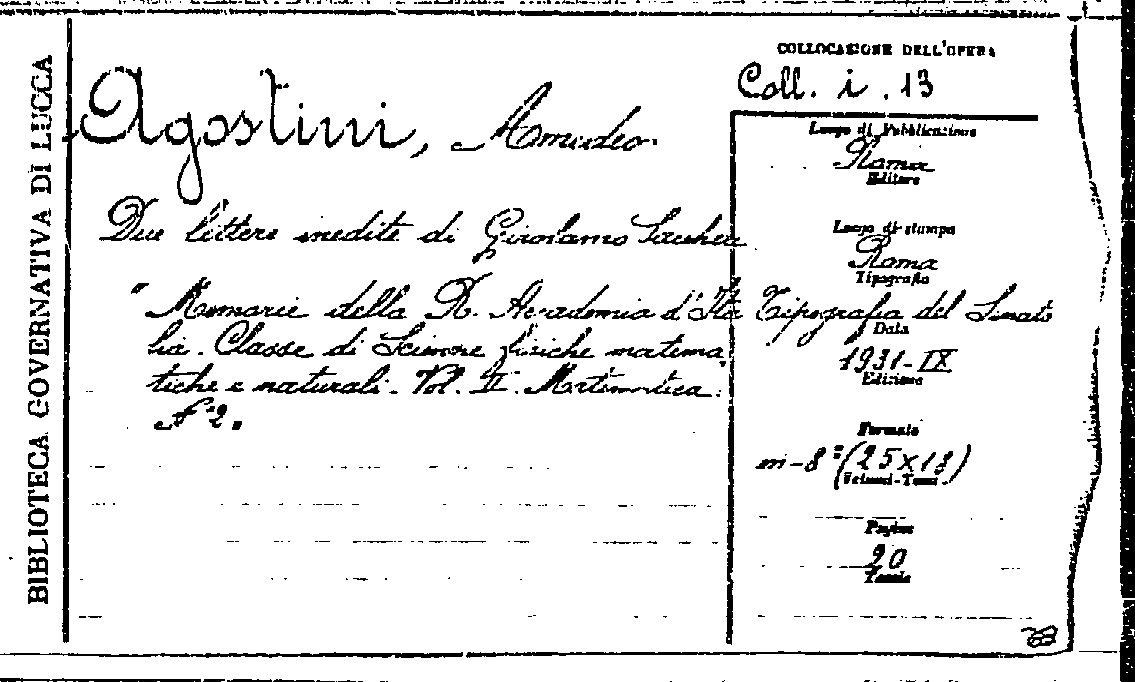 BIBLIOTECA GOVERNATIVA DI LUCCA
Agostini, Amedeo.
Due lettere inedite di Girolamo Saccheri
"Memorie della R. Accademia d'Ita
lia. Classe di Scienze fisiche matema
tiche e naturali. Vol. II. Matematica.
N° 2.
COLLOCAZIONE DELL'OPERA
Coll. i. 13
Luogo di Pubblicazione
Roma
Editore
Luogo di stampa
Roma
Tipografia
Tipografia del Senato
Data
1931-IX
Edizione
Formato
in-8° (25x18)
Volumi-Tomi
Pagine
20
Tavole